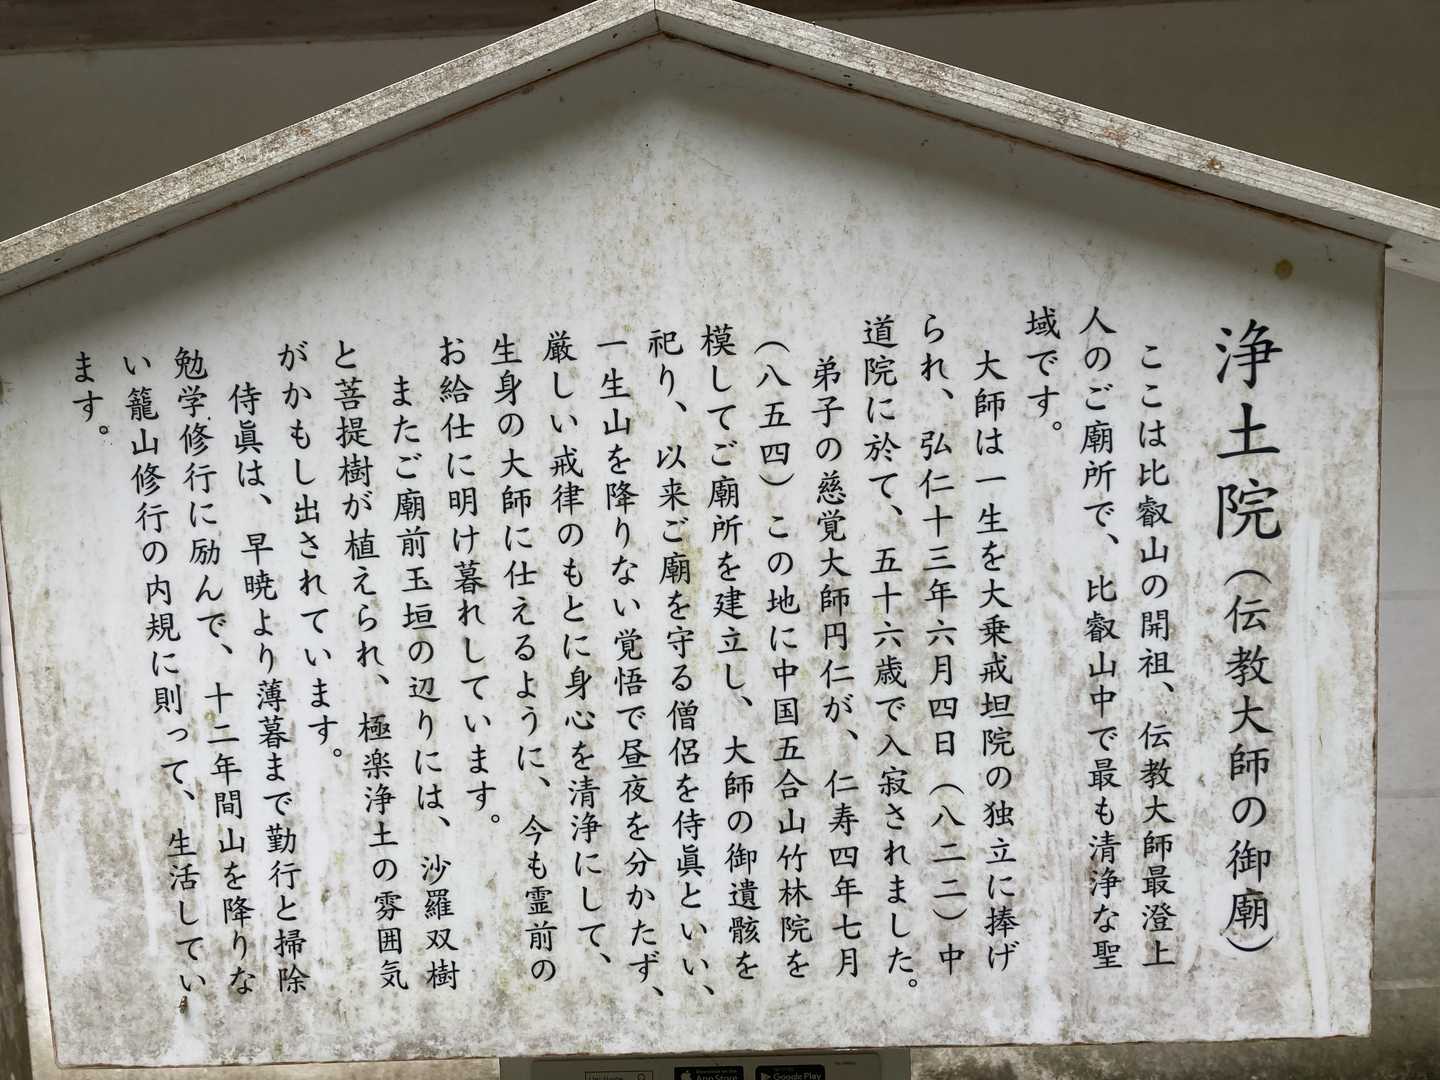 浄土院（伝教大師の御廟）
ここは比叡山の開祖、伝教大師最澄上
人のご廟所で、比叡山中で最も清浄な聖
域です。
大師は一生を大乗戒坦院の独立に捧げ
られ、弘仁十三年六月四日（八二二）中
道院に於て、五十六歳で入寂されました。
弟子の慈覚大師円仁が、仁寿四年七月
（八五四）この地に中国五合山竹林院を
模してご廟所を建立し、大師の御遺骸を
祀り、以来ご廟を守る僧侶を侍眞といい、
一生山を降りない覚悟で昼夜を分かたず、
厳しい戒律のもとに身心を清浄にして、
生身の大師に仕えるように、今も霊前の
お給仕に明け暮れしています。
またご廟前玉垣の辺りには、沙羅双樹
と菩提樹が植えられ、極楽浄土の雰囲気
がかもし出されています。
侍眞は、早暁より薄暮まで勤行と掃除
勉学修行に励んで、十二年間山を降りな
い籠山修行の内規に則って、生活してい
ます。
App Store
Google Play